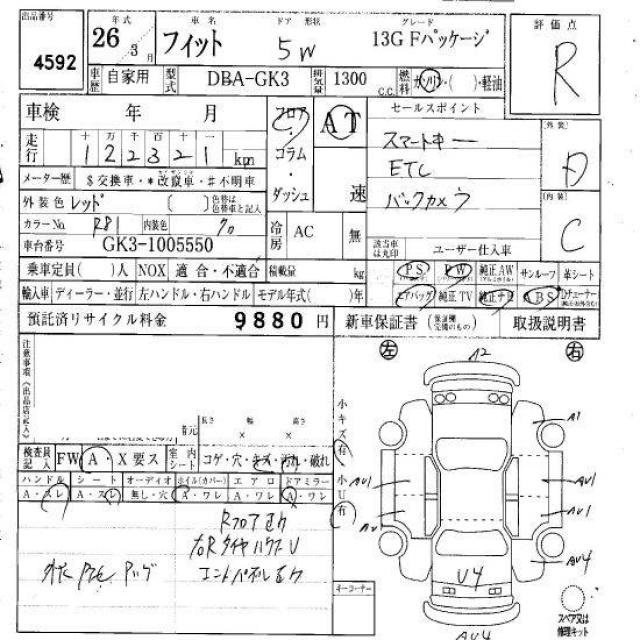 出品番号 4592
年式 26年3月
車名 フィット
ドア 形状 5W
グレード 13G Fパッケージ
評価点 R
車歴 自家用 型式 DBA-GK3 排気量 1300 C.C. 燃料 ガソリン・( )・軽油
車検 年 月
フロア・コラム・ダッシュ
AT 速
セールスポイント
スマートキー
ETC
バックカメラ
外装 D
内装 C
走行 十 万 千 百 十 一
122321 km
メーター歴 $交換車・*改竄車・#不明車
外装色 レッド ( ) 色替は色替車と記入
カラーNo. R81 内装色 クロ
車台番号 GK3-1005550
冷房 AC 無
該当車は丸印 ユーザー仕入車
PS PW 純正AW サンルーフ 革シート
エアバッグ 純正TV 純正ナビ ABS Dチューナー
乗車定員( )人 NOX 適合・不適合 積載量 kg
輸入車 ディーラー・並行 左ハンドル・右ハンドル モデル年式( )年
預託済リサイクル料金 9880円 新車保証書 取扱説明書
注意事項《出品店記入》
長さ 幅 高さ
× ×
検査員記入 FW A・X要ス 室内シート コゲ・穴・キズ・汚れ・破れ
ハンドル シート オーディオ ホイル(カバー) エアロ ドアミラー
A・スレ A・スレ 無し・穴 A・ワレ A・ワレ A・ワレ
小キズ有 小U有
左 右
A2
A1
AU1 AU1
AU1 AU1
AU4
U4
AU4
Rフロア
右Rタイヤハウス U
エンドパネル
キーコーナー
スペア又は修理キット